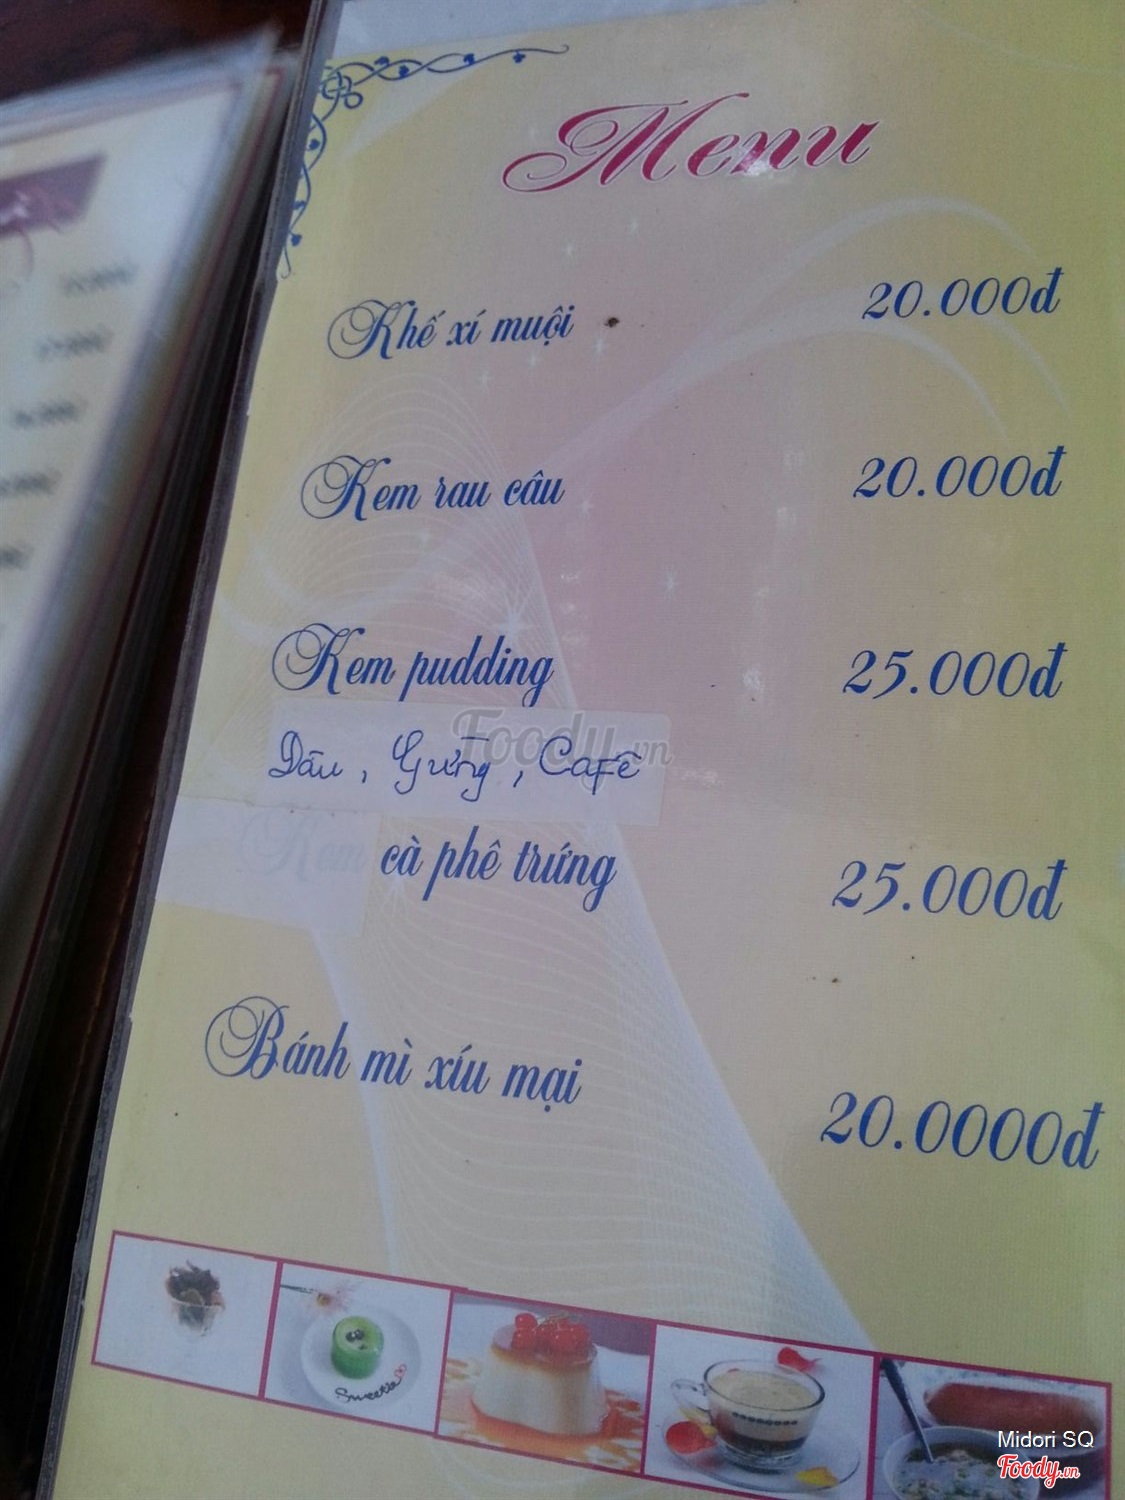 Menu
Khế xí muội 20.000đ
Kem rau câu 20.000đ
Kem pudding 25.000đ
Foody.vn
Dâu, Gừng, Café
Kem cà phê trứng 25.000đ
Bánh mì xíu mại 20.0000đ
Sweetie
Midori SQ
Foody.vn